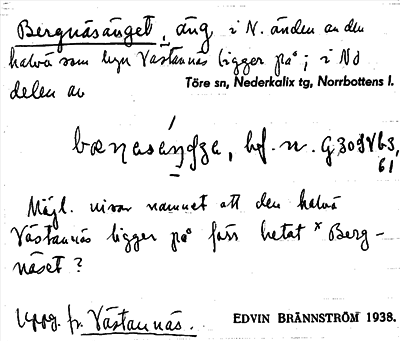 Bergnäsänget, äng i N. änden av den
halvö som byn Västannäs ligger på; i NO
delen av
Töre sn, Nederkalix tg, Norrbottens l.
bf. n. G 3098 V 63,
61
Möjl. visar namnet att den halvö
Västannäs ligger på förr hetat ˣBerg-
näset?
Uppg. fr. Västannäs.
EDVIN BRÄNNSTRÖM 1938.